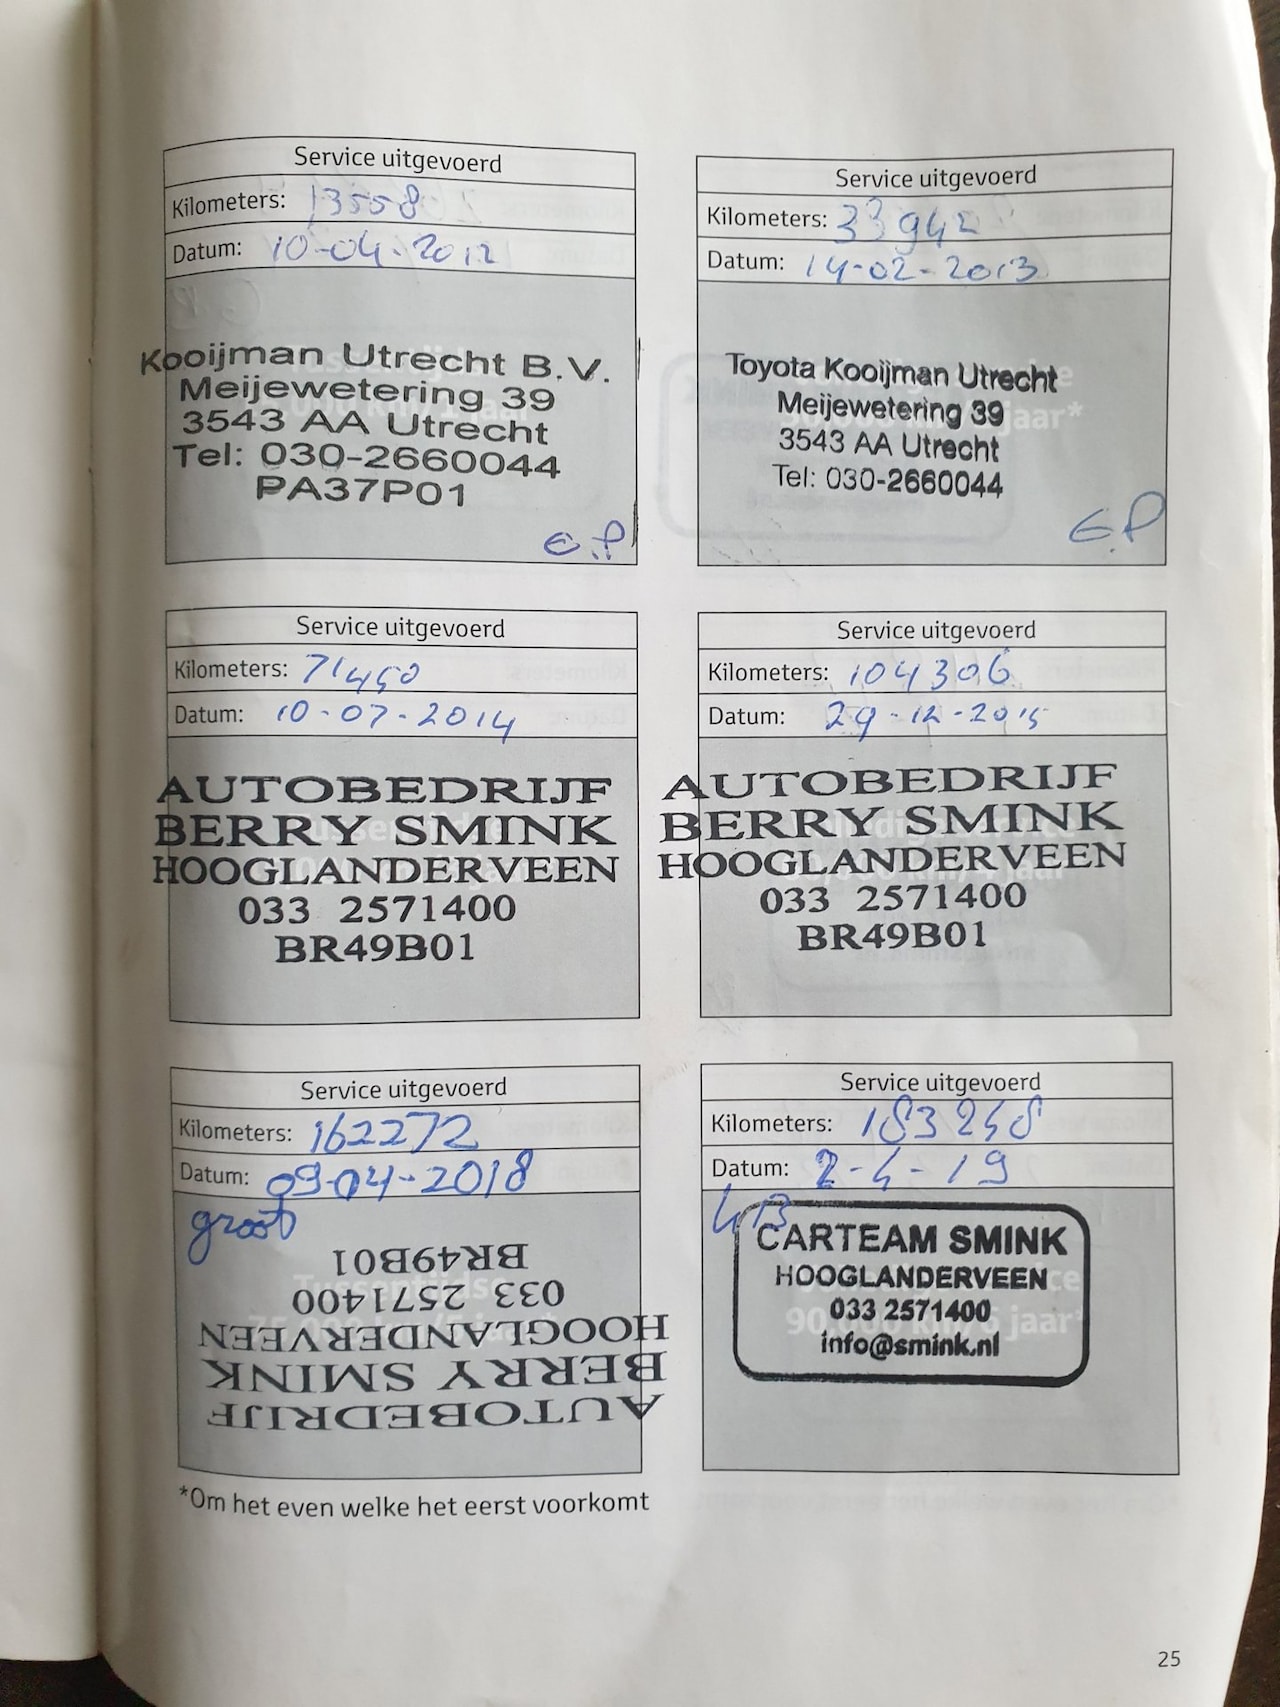 Service uitgevoerd
Kilometers: 13558
Datum: 10-04-2012
Tussentijdse
Kooijman Utrecht B.V.
Meijewetering 39
3543 AA Utrecht
Tel: 030-2660044
PA37P01
E.P
Service uitgevoerd
Kilometers: 33942
Datum: 14-02-2013
Toyota Kooijman Utrecht
Meijewetering 39
3543 AA Utrecht
Tel: 030-2660044
E.P
Service uitgevoerd
Kilometers: 71450
Datum: 10-07-2014
AUTOBEDRIJF
BERRY SMINK
HOOGLANDERVEEN
033 2571400
BR49B01
Service uitgevoerd
Kilometers: 104306
Datum: 29-12-2015
AUTOBEDRIJF
BERRY SMINK
HOOGLANDERVEEN
033 2571400
BR49B01
Service uitgevoerd
Kilometers: 162272
Datum: 09-04-2018
groot
Tussentijdse
AUTOBEDRIJF
BERRY SMINK
HOOGLANDERVEEN
033 2571400
BR49B01
Service uitgevoerd
Kilometers: 183248
Datum: 2-4-19
CARTEAM SMINK
HOOGLANDERVEEN
033 2571400
info@smink.nl
90.000 km/6 jaar*
*Om het even welke het eerst voorkomt
25